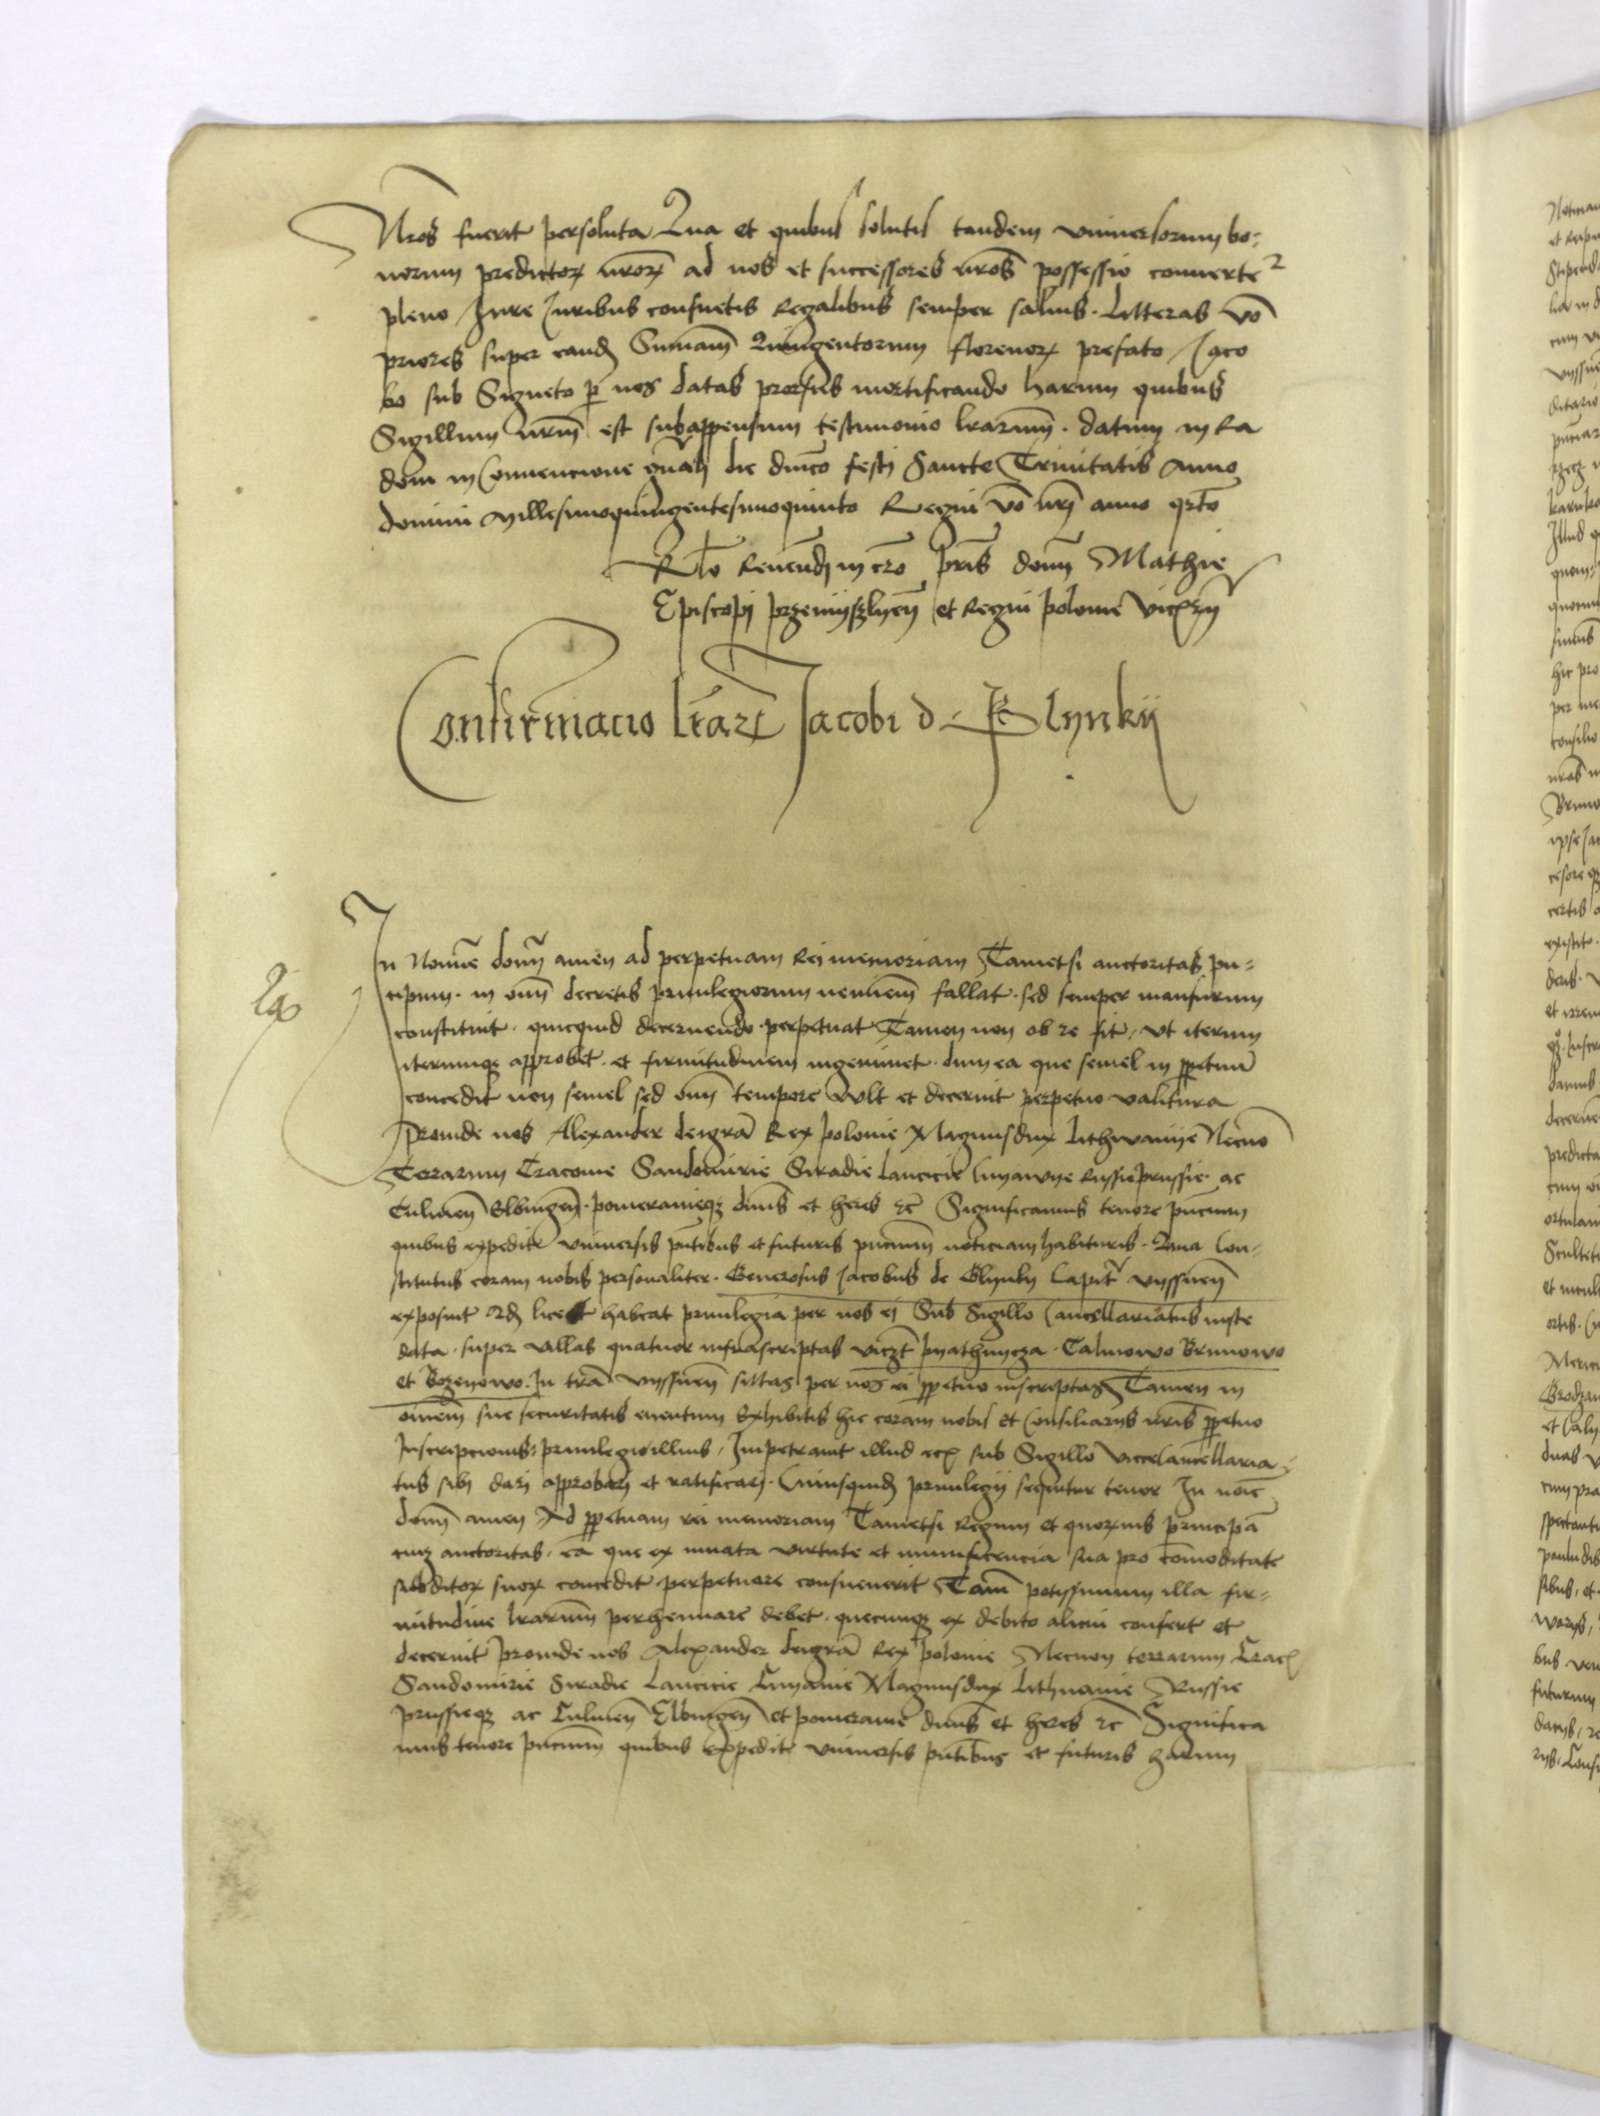 Nros fuerit persoluta Qua et quibus solutis tandem universorum bo-
norum predictorum nrorum ad nos et successores nros possessio converte2
pleno Jure Juribus consuetis Regalibus semper salvis. Litteras vo
priores super eand Sumam Quingentorum florenorum prefato Jaco
bo sub Signeto p nos datas prorsus mortificando harum quibus
Sigillum nrm est subappensum testimonio lrarum. datum in Ra
dom in Convencione gnali die dnico festi Sancte Trinitatis Anno
domini Millesimoquingentesimoquinto Regni vo nri anno qrto
Rlo Reverendi in cro pris domi Mathie
Episcopi przemijszlyen et Regni polonie viczn
Confirmacio lrarum Jacobi d Glynkij
In Nomie domi amen ad perpetuam Rei memoriam Tametsi auctoritas prin-
cipum. in omi decretis privilegiorum neminem fallat. sed semper mansurum
constituit. quicquid decernendo perpetuat Tamen non ob re fit, ut iterum
iterumque approbet. et firmitudinem ingeminet. dum ea que semel in ppetuum
concedit non semel sed omi tempore vult et decernit perpetuo valitura
proinde nos Alexander deigra Rex polonie Magnusdux lithwanije Necno
Terrarum Cracovie Sandomirie Siradie lancicie Cuyavye Russie prussie ac
Culmen Elbingen. pomeranieque dnus et heres etc Significamus tenore pncium
quibus expedit universis pntibus et futuris pncium noticiam habituris. Qua Con-
stitutus coram nobis personaliter. Generosus Jacobus de Glynky Capit vyssnen
exposuit qd licet habeat privilegia per nos ei Sub Sigillo Cancellariatus iuste
data. super villas quatuor infrascriptas viczt pyathnycza. Calinowo Brunowo
et Bozenowo. In tra vyssnen sittas per nos ei ppetuo inscriptas Tamen in
omem sue securitatis eventum Exhibitis hic coram nobis et Consiliarijs nris ppetuo
Inscripcionis privilegio illius, Impetravit illud sub Sigillo Vicecancellaria-
tus sibi dari approbari et ratificari. Cuiusquid privilegij sequitur tenor In noie
domi amen Ad ppetuam rei memoriam Tametsi Regum et quorumvis principa
cuiq auctoritas. ea que ex innata virtute et munificencia sua pro comoditate
subditorum suorum concedit perpetuare consueverit Tam potissimum illa fir-
mitudine lrarum perhennare debet. quecumque ex debito alicui confert et
decernit proinde nos Alexander deigra Rex polonie Necnon terrarum Crac
Sandomirie Siradie Lancicie Cuyavie Magnusdux lithuanie Russie
prussieque ac Culmen Elbingen et pomeranie dnus et heres etc Significa
mus tenore pncium quibus Expedit universis pntibus et futuris harum